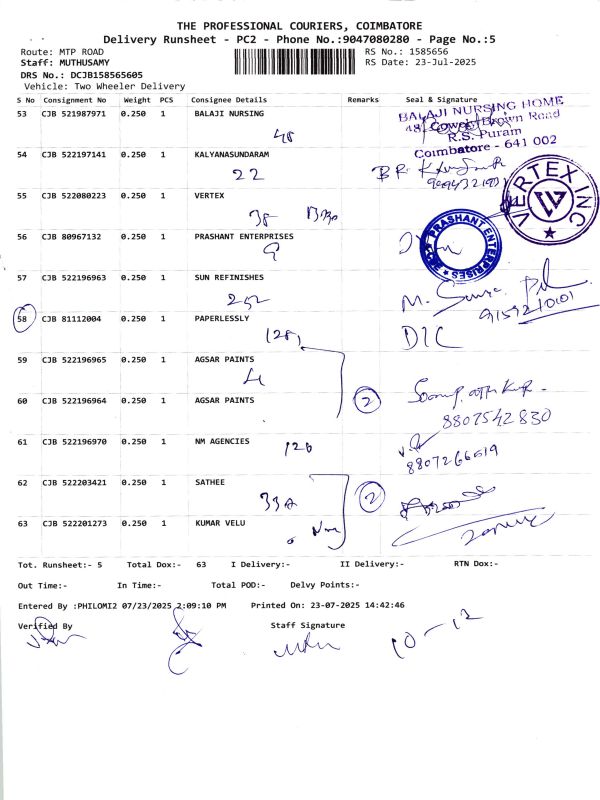 THE PROFESSIONAL COURIERS, COIMBATORE
Delivery Runsheet - PC2 - Phone No.:9047080280 - Page No.:5
Route: MTP ROAD RS No.: 1585656
Staff: MUTHUSAMY RS Date: 23-Jul-2025
DRS No.: DCJB158565605
Vehicle: Two Wheeler Delivery
S No Consignment No Weight PCS Consignee Details Remarks Seal & Signature
53 CJB 521987971 0.250 1 BALAJI NURSING
BALAJI NURSING HOME
48, Cowley Brown Road
R.S. Puram
Coimbatore - 641 002
48
54 CJB 522197141 0.250 1 KALYANASUNDARAM
22
55 CJB 522080223 0.250 1 VERTEX
VERTEX INC
38
56 CJB 80967132 0.250 1 PRASHANT ENTERPRISES
PRASHANT ENTERPRISES
9
57 CJB 522196963 0.250 1 SUN REFINISHES
252
9159210101
58 CJB 81112004 0.250 1 PAPERLESSLY
128
DIC
59 CJB 522196965 0.250 1 AGSAR PAINTS
4
2
60 CJB 522196964 0.250 1 AGSAR PAINTS
8807542830
61 CJB 522196970 0.250 1 NM AGENCIES
126
8807266619
62 CJB 522203421 0.250 1 SATHEE
33A
2
63 CJB 522201273 0.250 1 KUMAR VELU
Tot. Runsheet:- 5 Total Dox:- 63 I Delivery:- II Delivery:- RTN Dox:-
Out Time:- In Time:- Total POD:- Delvy Points:-
Entered By :PHILOMI2 07/23/2025 2:09:10 PM Printed On: 23-07-2025 14:42:46
Verified By Staff Signature
10-12